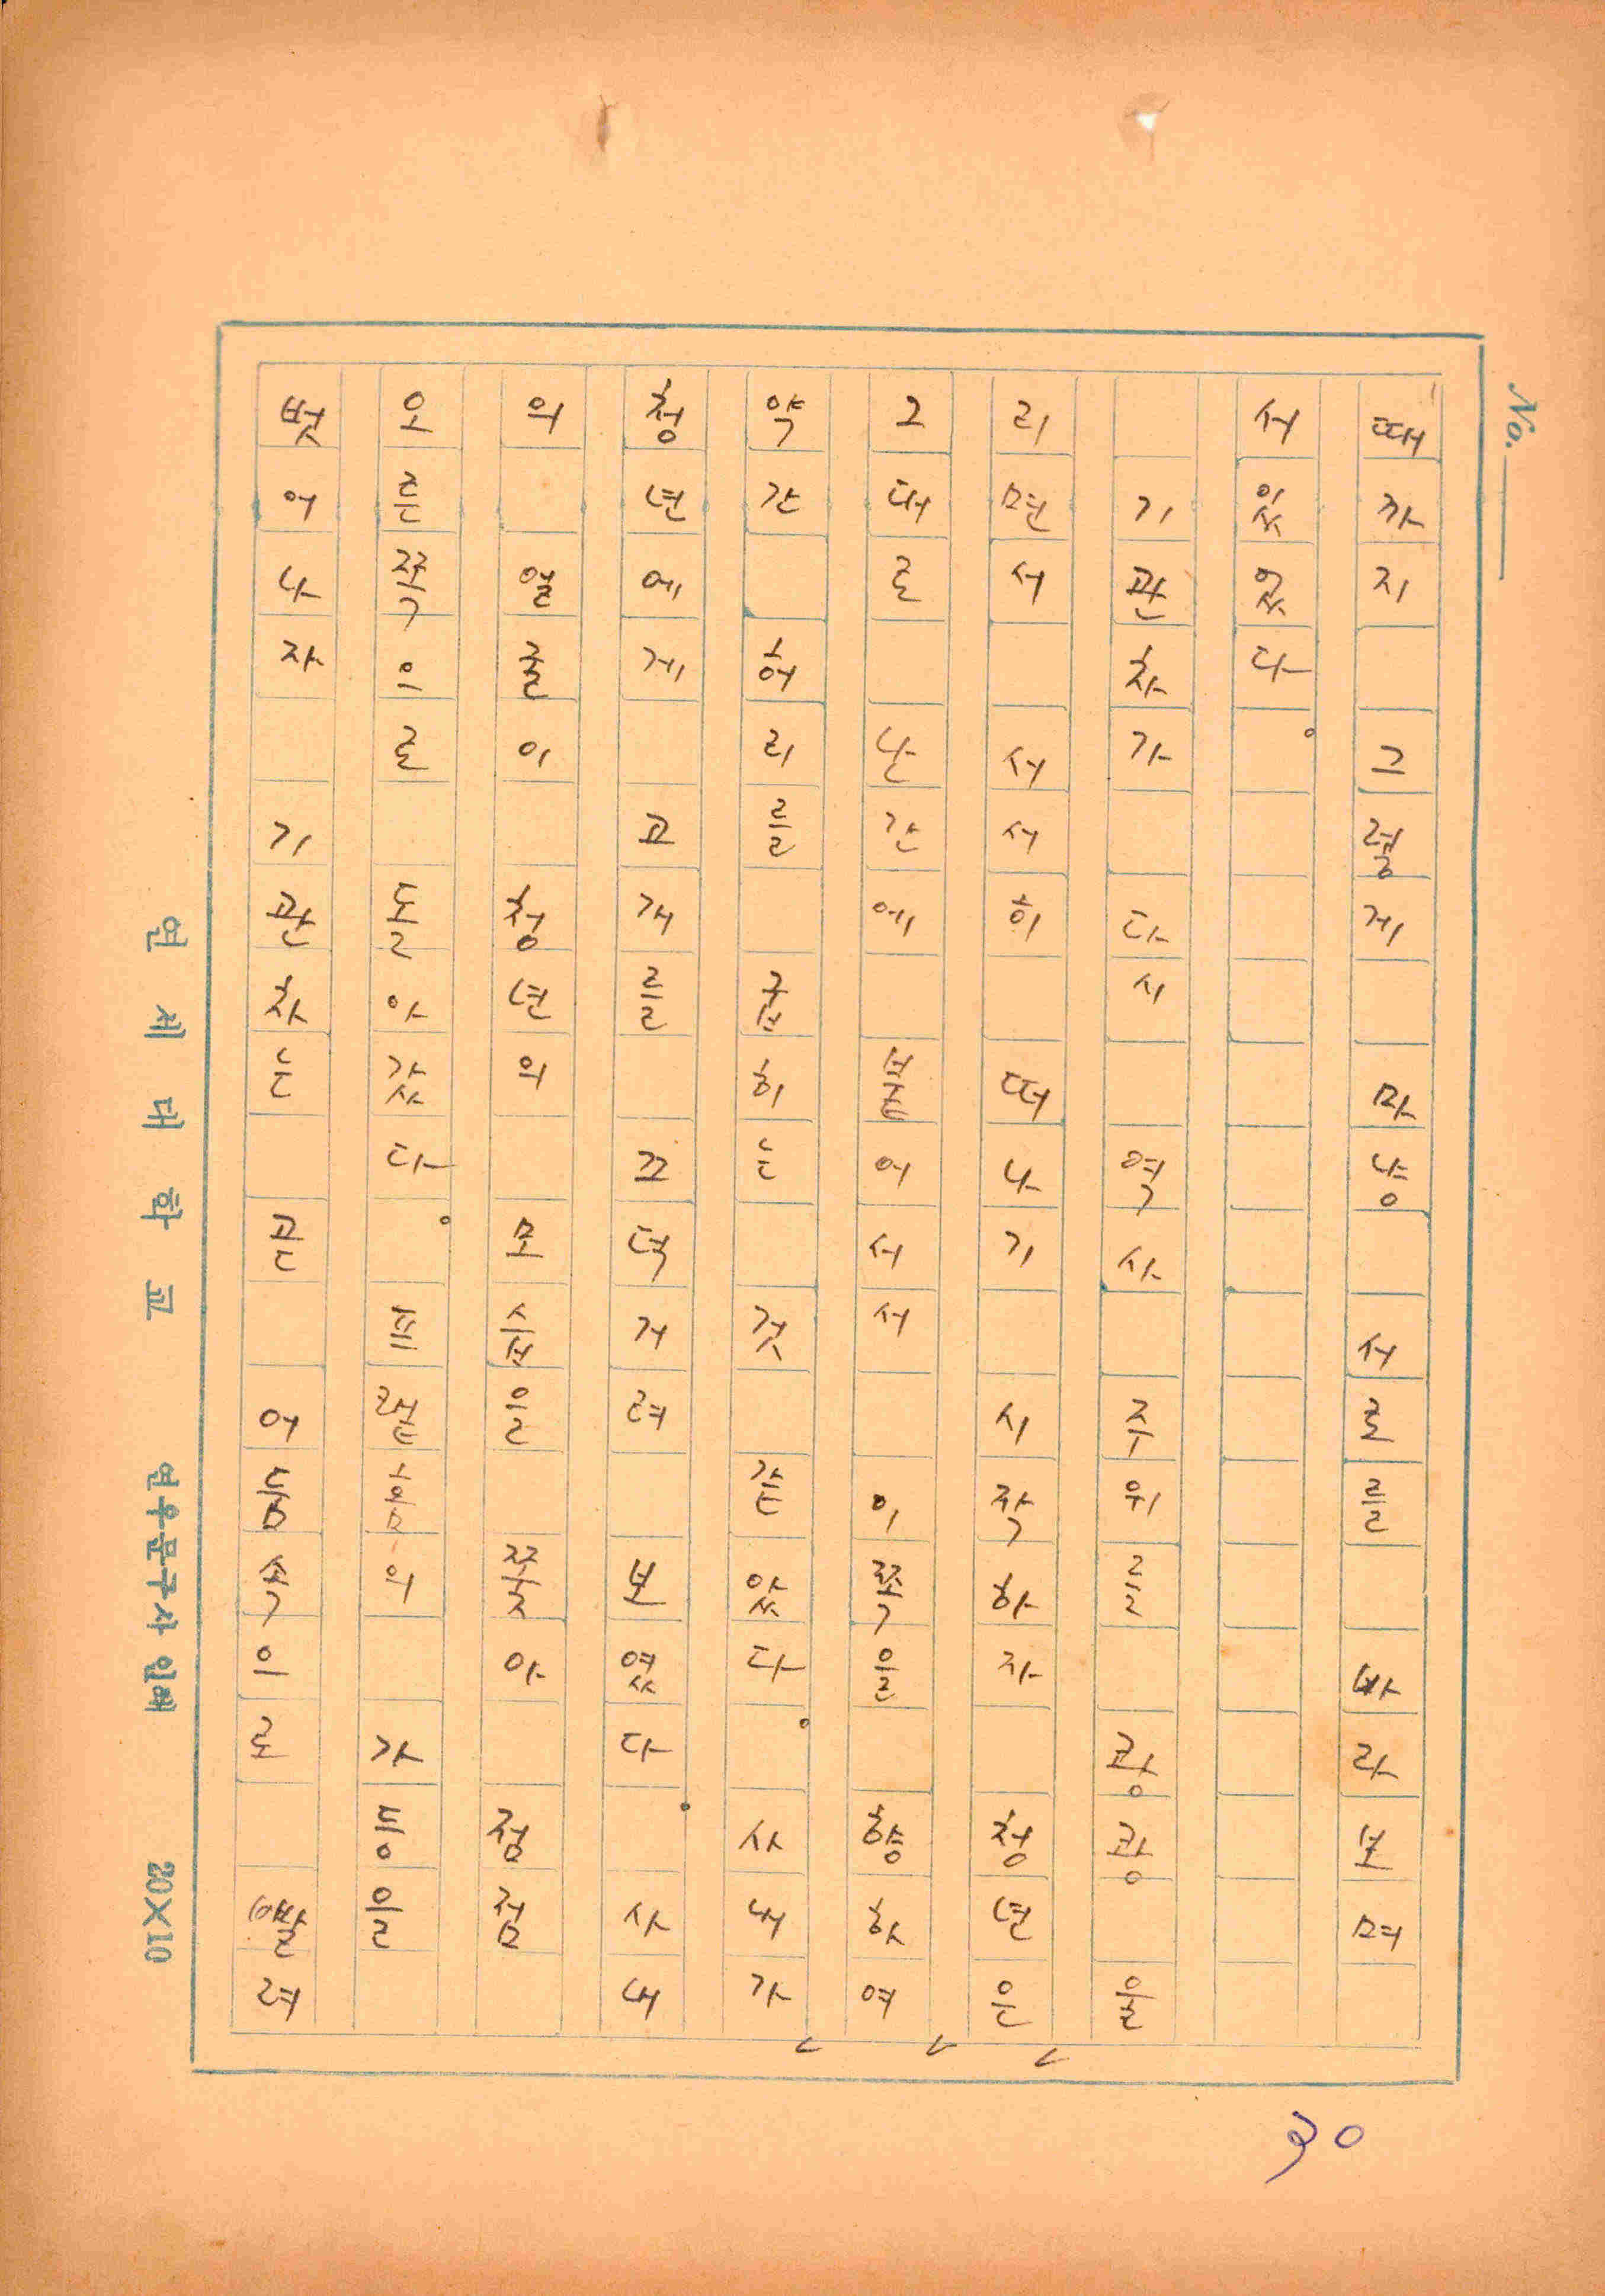 No.
때까지 그렇게 마냥 서로를 바라보며
서있었다。
기관차가 다시 역사 주위를 쾅쾅 울
리면서 서서히 떠나기 시작하자 청년은
그대로 난간에 붙어서서 이쪽을 향하여
약간 허리를 굽히는 것 같았다。사내가
청년에게 고개를 끄덕거려 보였다。사내
의 얼굴이 청년의 모습을 쫓아 점점
오른쪽으로 돌아갔다。 가등을
벗어나자 기관차는 곧 어둠속으로 빨려
연세대학교 연우문구사 인쇄 20×10
30